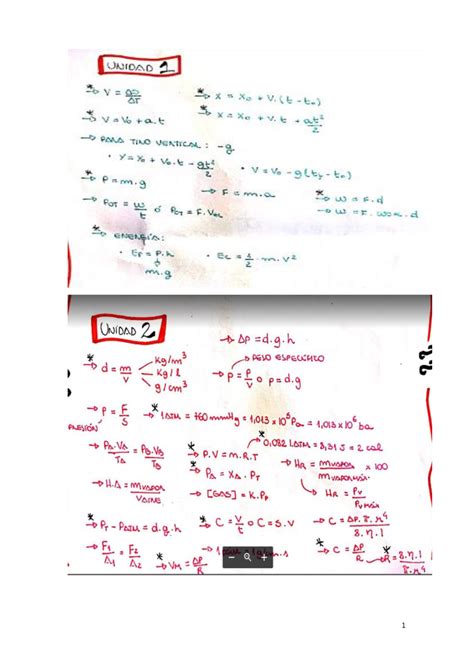 UNIDAD 1
* → V = ΔD/ΔT
* → X = X₀ + V.(t - t₀)
* → V = V₀ + a.t
* → X = X₀ + V₀.t + a.t²/2
→ PARA TIRO VERTICAL: -g
• Y = Y₀ + V₀.t - g.t²/2
• V = V₀ - g(tf - t₀)
* → P = m.g
→ F = m.a
* → W = F.d
→ POT = W/t ó POT = F.Vel
→ W = F.cos α.d
* → ENERGÍA:
• EP = P.h
m.g
• EC = 1/2 . m. V²
UNIDAD 2
→ ΔP = d.g.h
* → d = m/V
Kg/m³
Kg/l
g/cm³
→ PESO ESPECÍFICO
→ ρ = P/V o ρ = d.g
→ P = F/S
PRESIÓN
* → 1 ATM = 760 mmHg = 1,013 x 10⁵ Pa = 1,013 x 10⁶ ba
→ PA.VA/TA = PB.VB/TB
* → P.V = m.R.T
* 0,082 L ATM = 8,31 J = 2 cal
* → PA = XA.PT
→ HR = m VAPOR/m VAPOR MÁX x 100
→ H.A = m VAPOR/V AIRE
→ [GAS] = K.Pp
→ HR = PV/PV MÁX
* → PT - PATM = d.g.h
* → C = V/t o C = S.V
→ C = ΔP.π.r⁴/8.η.l
→ F1/A1 = F2/A2
* → VM = ΔP/R
* → C = ΔP/R
* → R = 8.η.l/π.r⁴
1